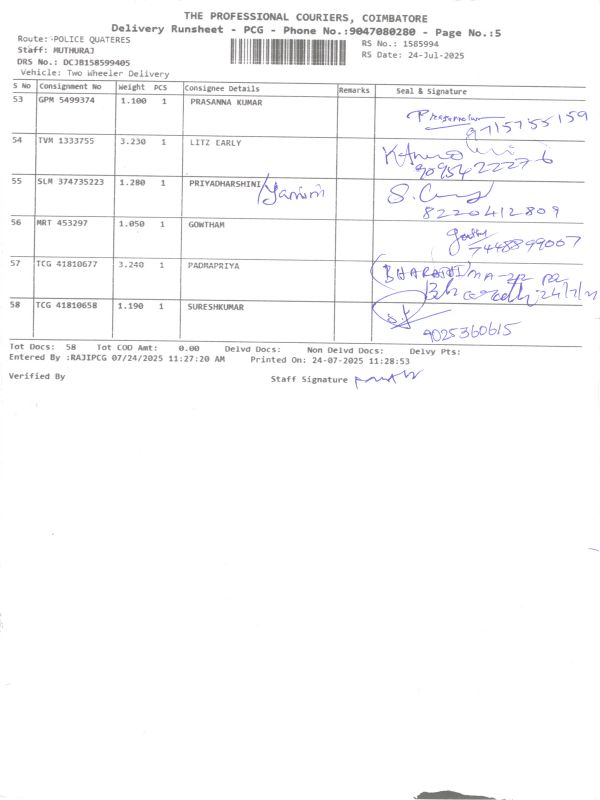 THE PROFESSIONAL COURIERS, COIMBATORE
Delivery Runsheet - PCG - Phone No.:9047080280 - Page No.:5
Route: POLICE QUATERES
RS No.: 1585994
Staff: MUTHURAJ
RS Date: 24-Jul-2025
DRS No.: DCJB158599405
Vehicle: Two Wheeler Delivery
S No Consignment No Weight PCS Consignee Details Remarks Seal & Signature
53 GPM 5499374 1.100 1 PRASANNA KUMAR
9715755159
54 TVM 1333755 3.230 1 LITZ EARLY
9095422276
55 SLM 374735223 1.280 1 PRIYADHARSHINI/Yamini
8220412809
56 MRT 453297 1.050 1 GOWTHAM
7448899007
57 TCG 41810677 3.240 1 PADMAPRIYA
BHARATHI
58 TCG 41810658 1.190 1 SURESHKUMAR
9025360615
Tot Docs: 58 Tot COD Amt: 0.00 Delvd Docs: Non Delvd Docs: Delvy Pts:
Entered By :RAJIPCG 07/24/2025 11:27:20 AM Printed On: 24-07-2025 11:28:53
Verified By Staff Signature